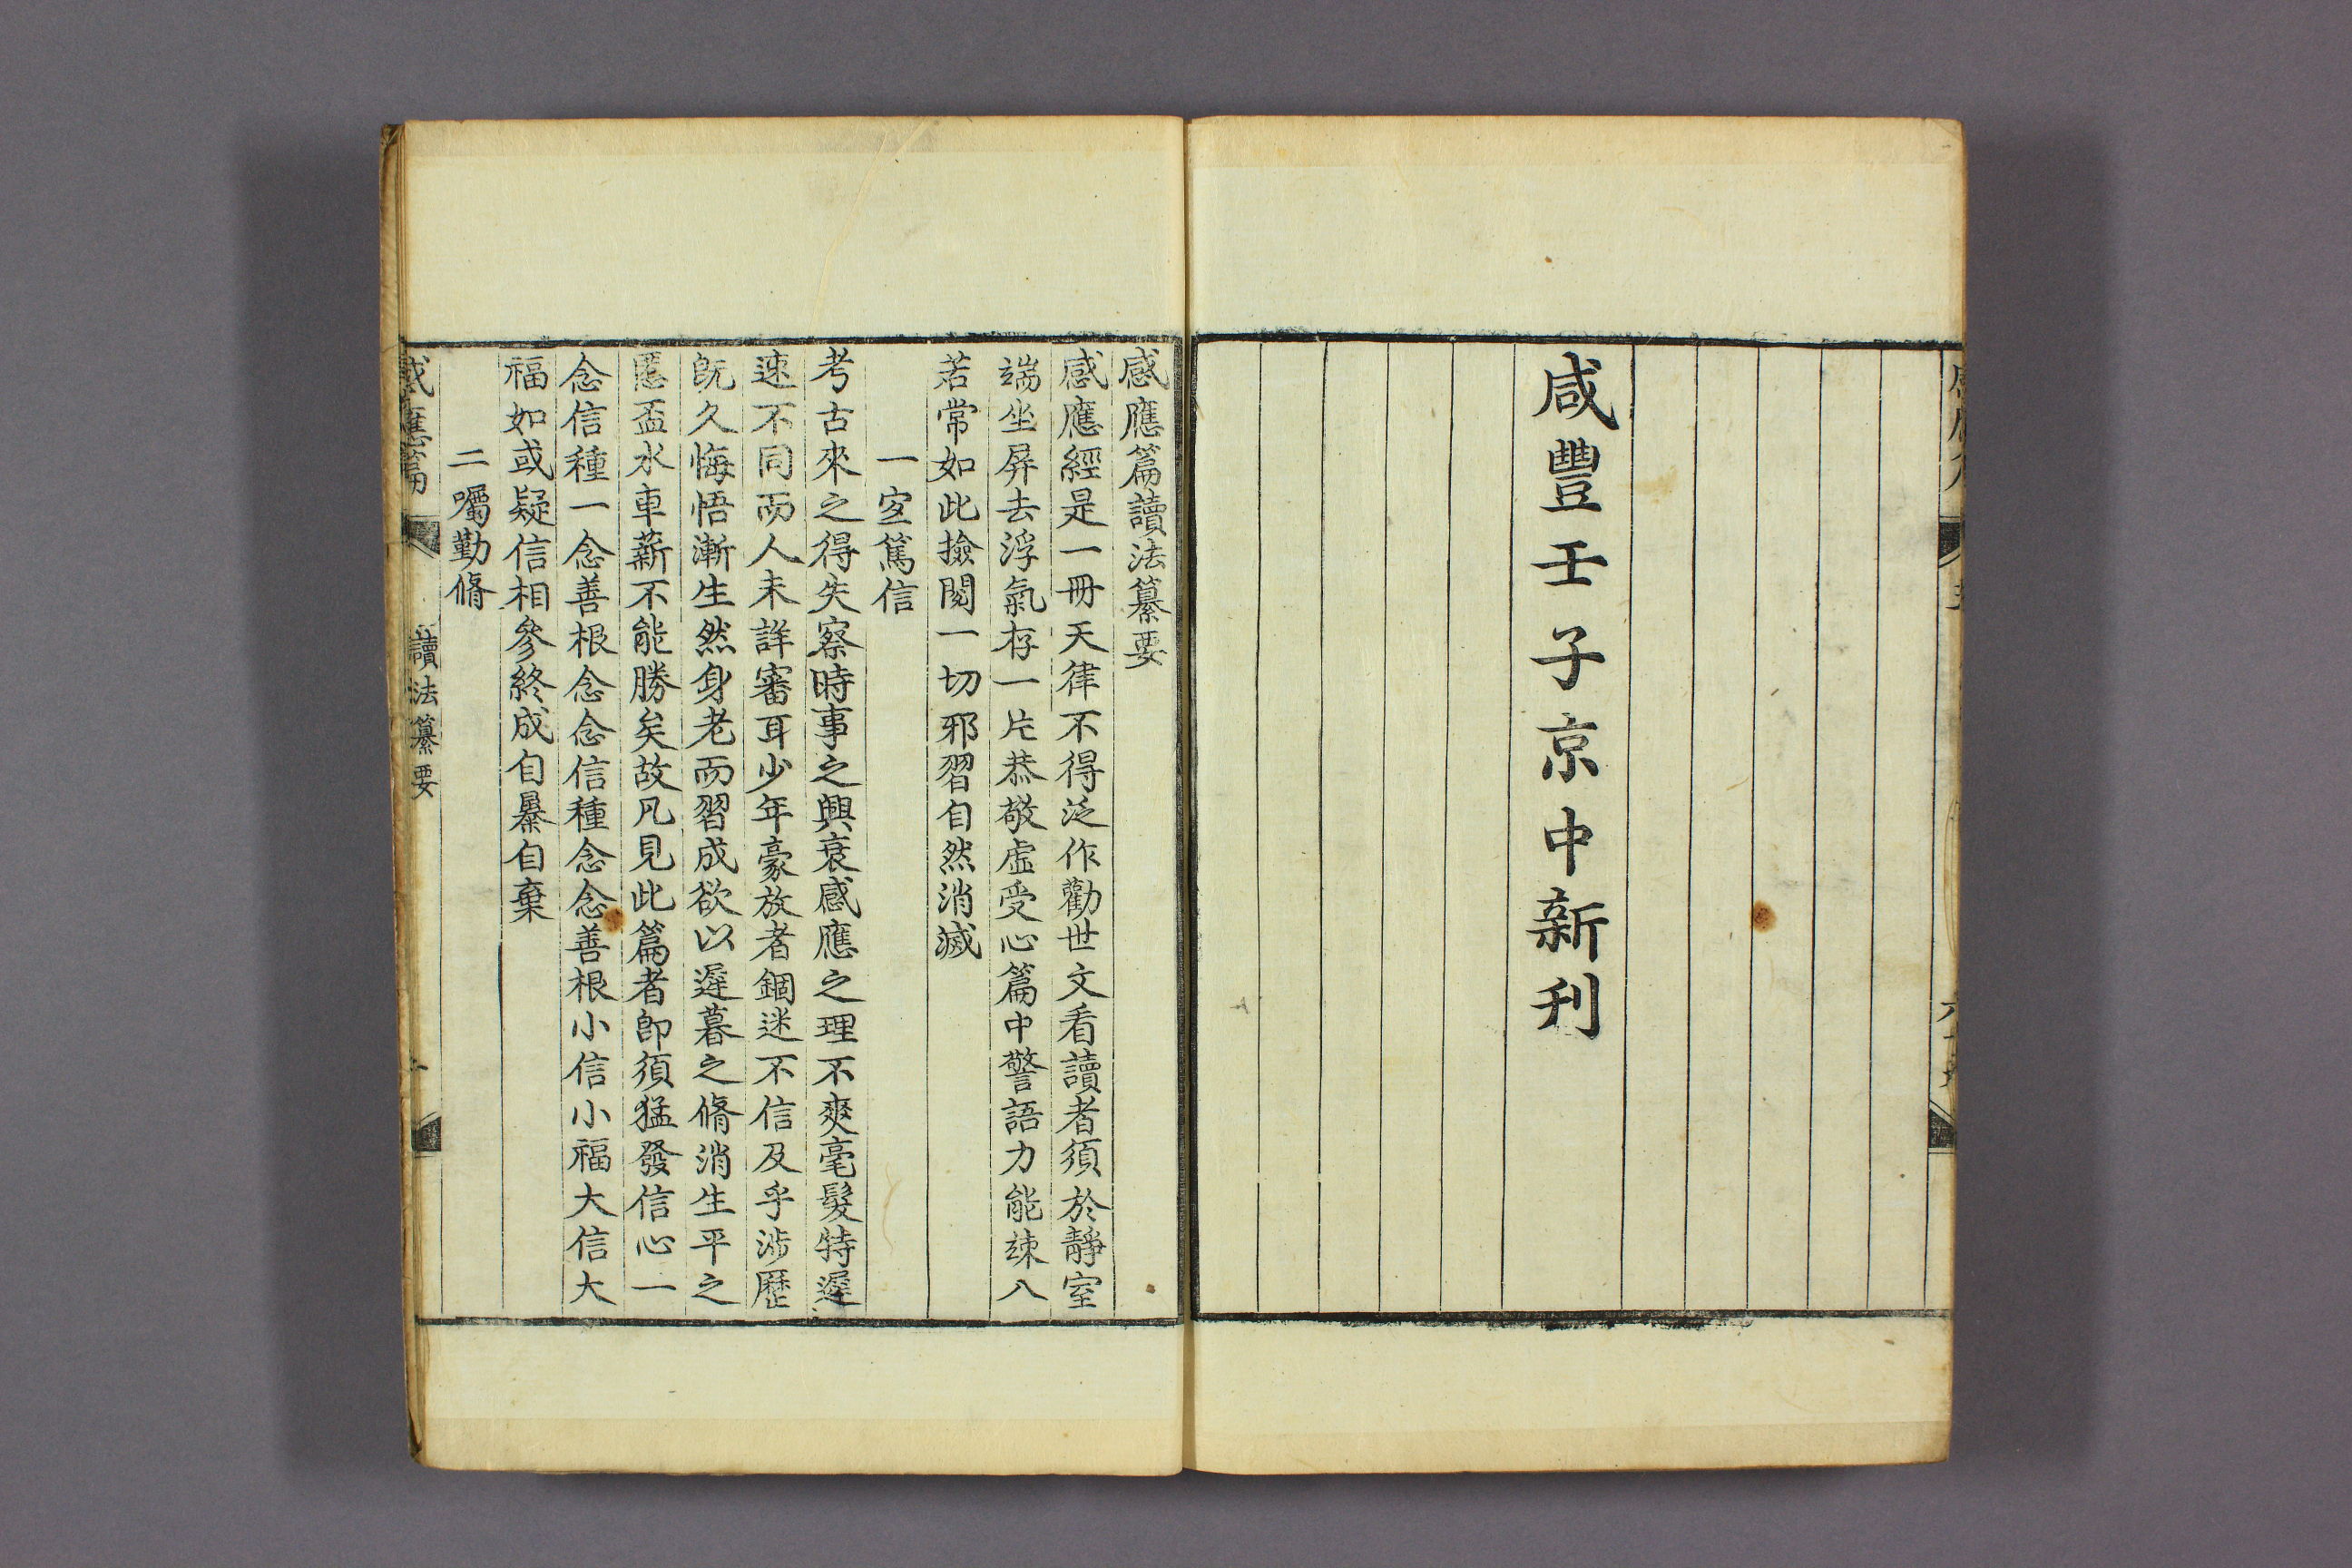 咸豐壬子京中新刊
感應篇讀法纂要
感應經是一冊天律不得泛作勸世文看讀者須於靜室
端坐屛去浮氣存一片恭敬虛受心篇中警語力能竦八
若常如此撿閱一切邪習自然消滅
一寔篤信
考古來之得失察時事之興衰感應之理不爽毫髮特遲
速不同而人未詳審耳少年豪放者錮迷不信及乎涉歷
旣久悔悟漸生然身老而習成欲以遲暮之脩消生平之
慝盃水車薪不能勝矣故凡見此篇者卽須猛發信心一
念信種一念善根念念信種念念善根小信小福大信大
福如或疑信相參終成自暴自棄
二囑勤脩
感應篇
讀法纂要